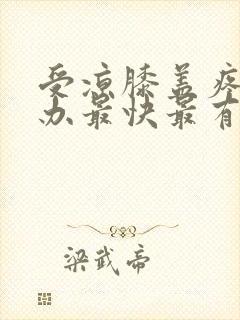 受凉膝盖疼
办最快最有
梁武帝